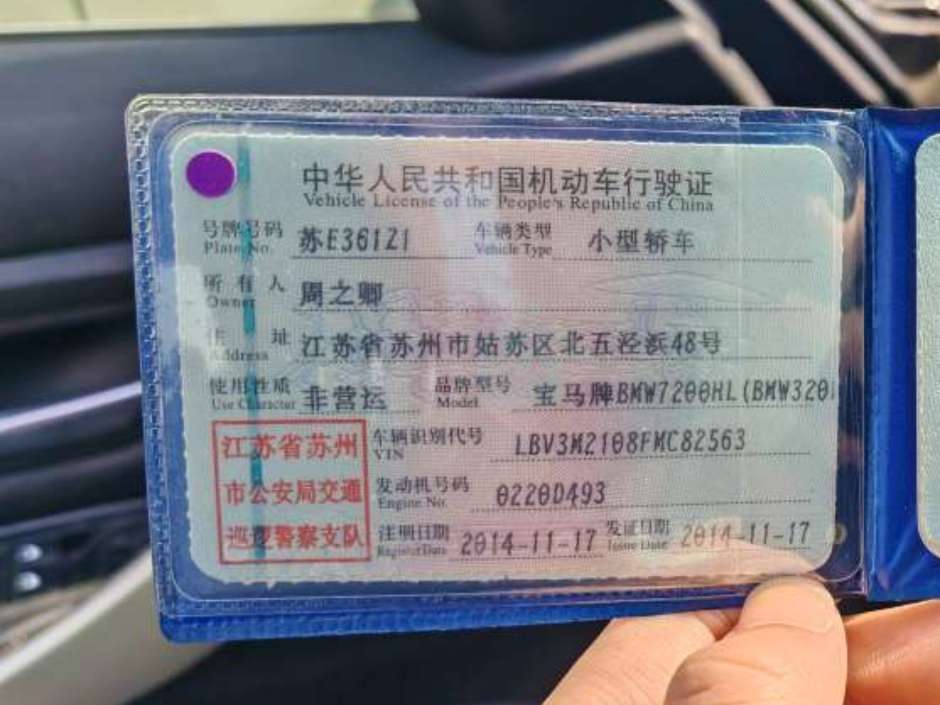 中华人民共和国机动车行驶证
Vehicle License of the People's Republic of China
号牌号码 苏E361Z1 车辆类型 小型轿车
Plate No. Vehicle Type
所有人 周之卿
Owner
住址 江苏省苏州市姑苏区北五泾浜48号
Address
使用性质 非营运 品牌型号 宝马牌BMW7200HL(BMW320
Use Character Model
江苏省苏州 车辆识别代号 LBV3M2108FMC82563
VIN
市公安局交通 发动机号码 0220D493
Engine No.
巡逻警察支队 注册日期 2014-11-17 发证日期 2014-11-17
Register Date Issue Date